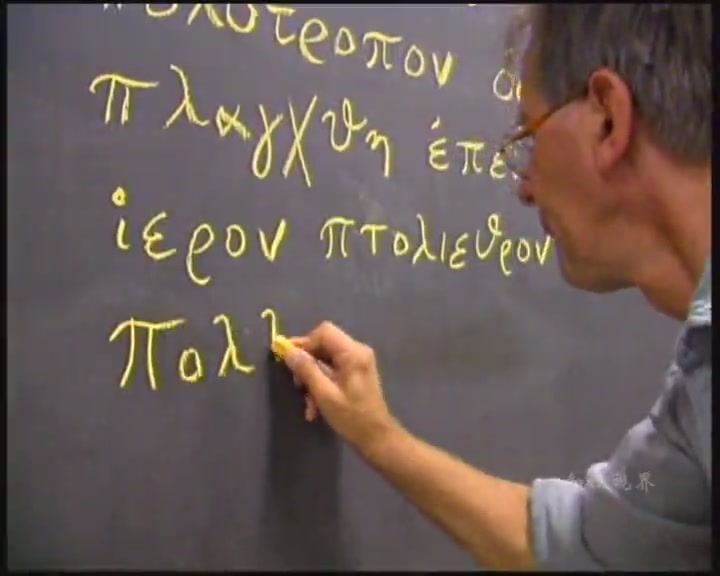 πολύτροπον
πλαγχθη ἐπε
ἱερον πτολιεθρον
πολλ